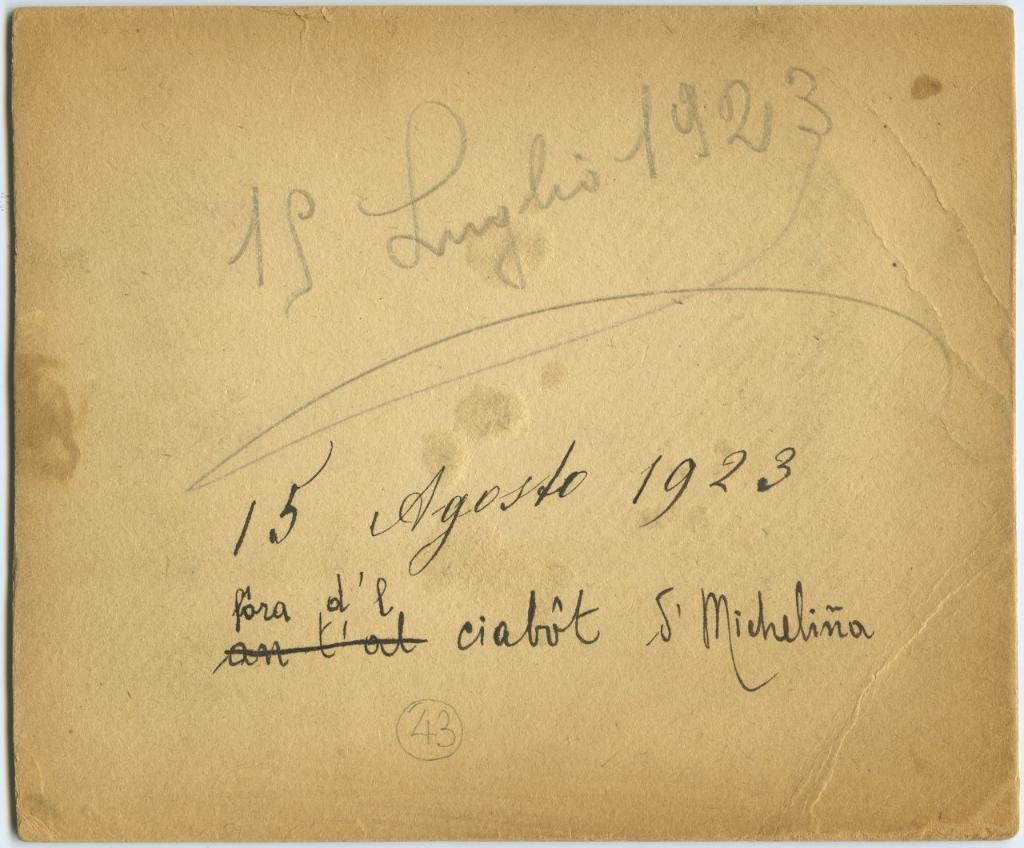 15 Luglio 1923
15 Agosto 1923
fôra d'l
an t'al ciabôt d' Micheliña
43